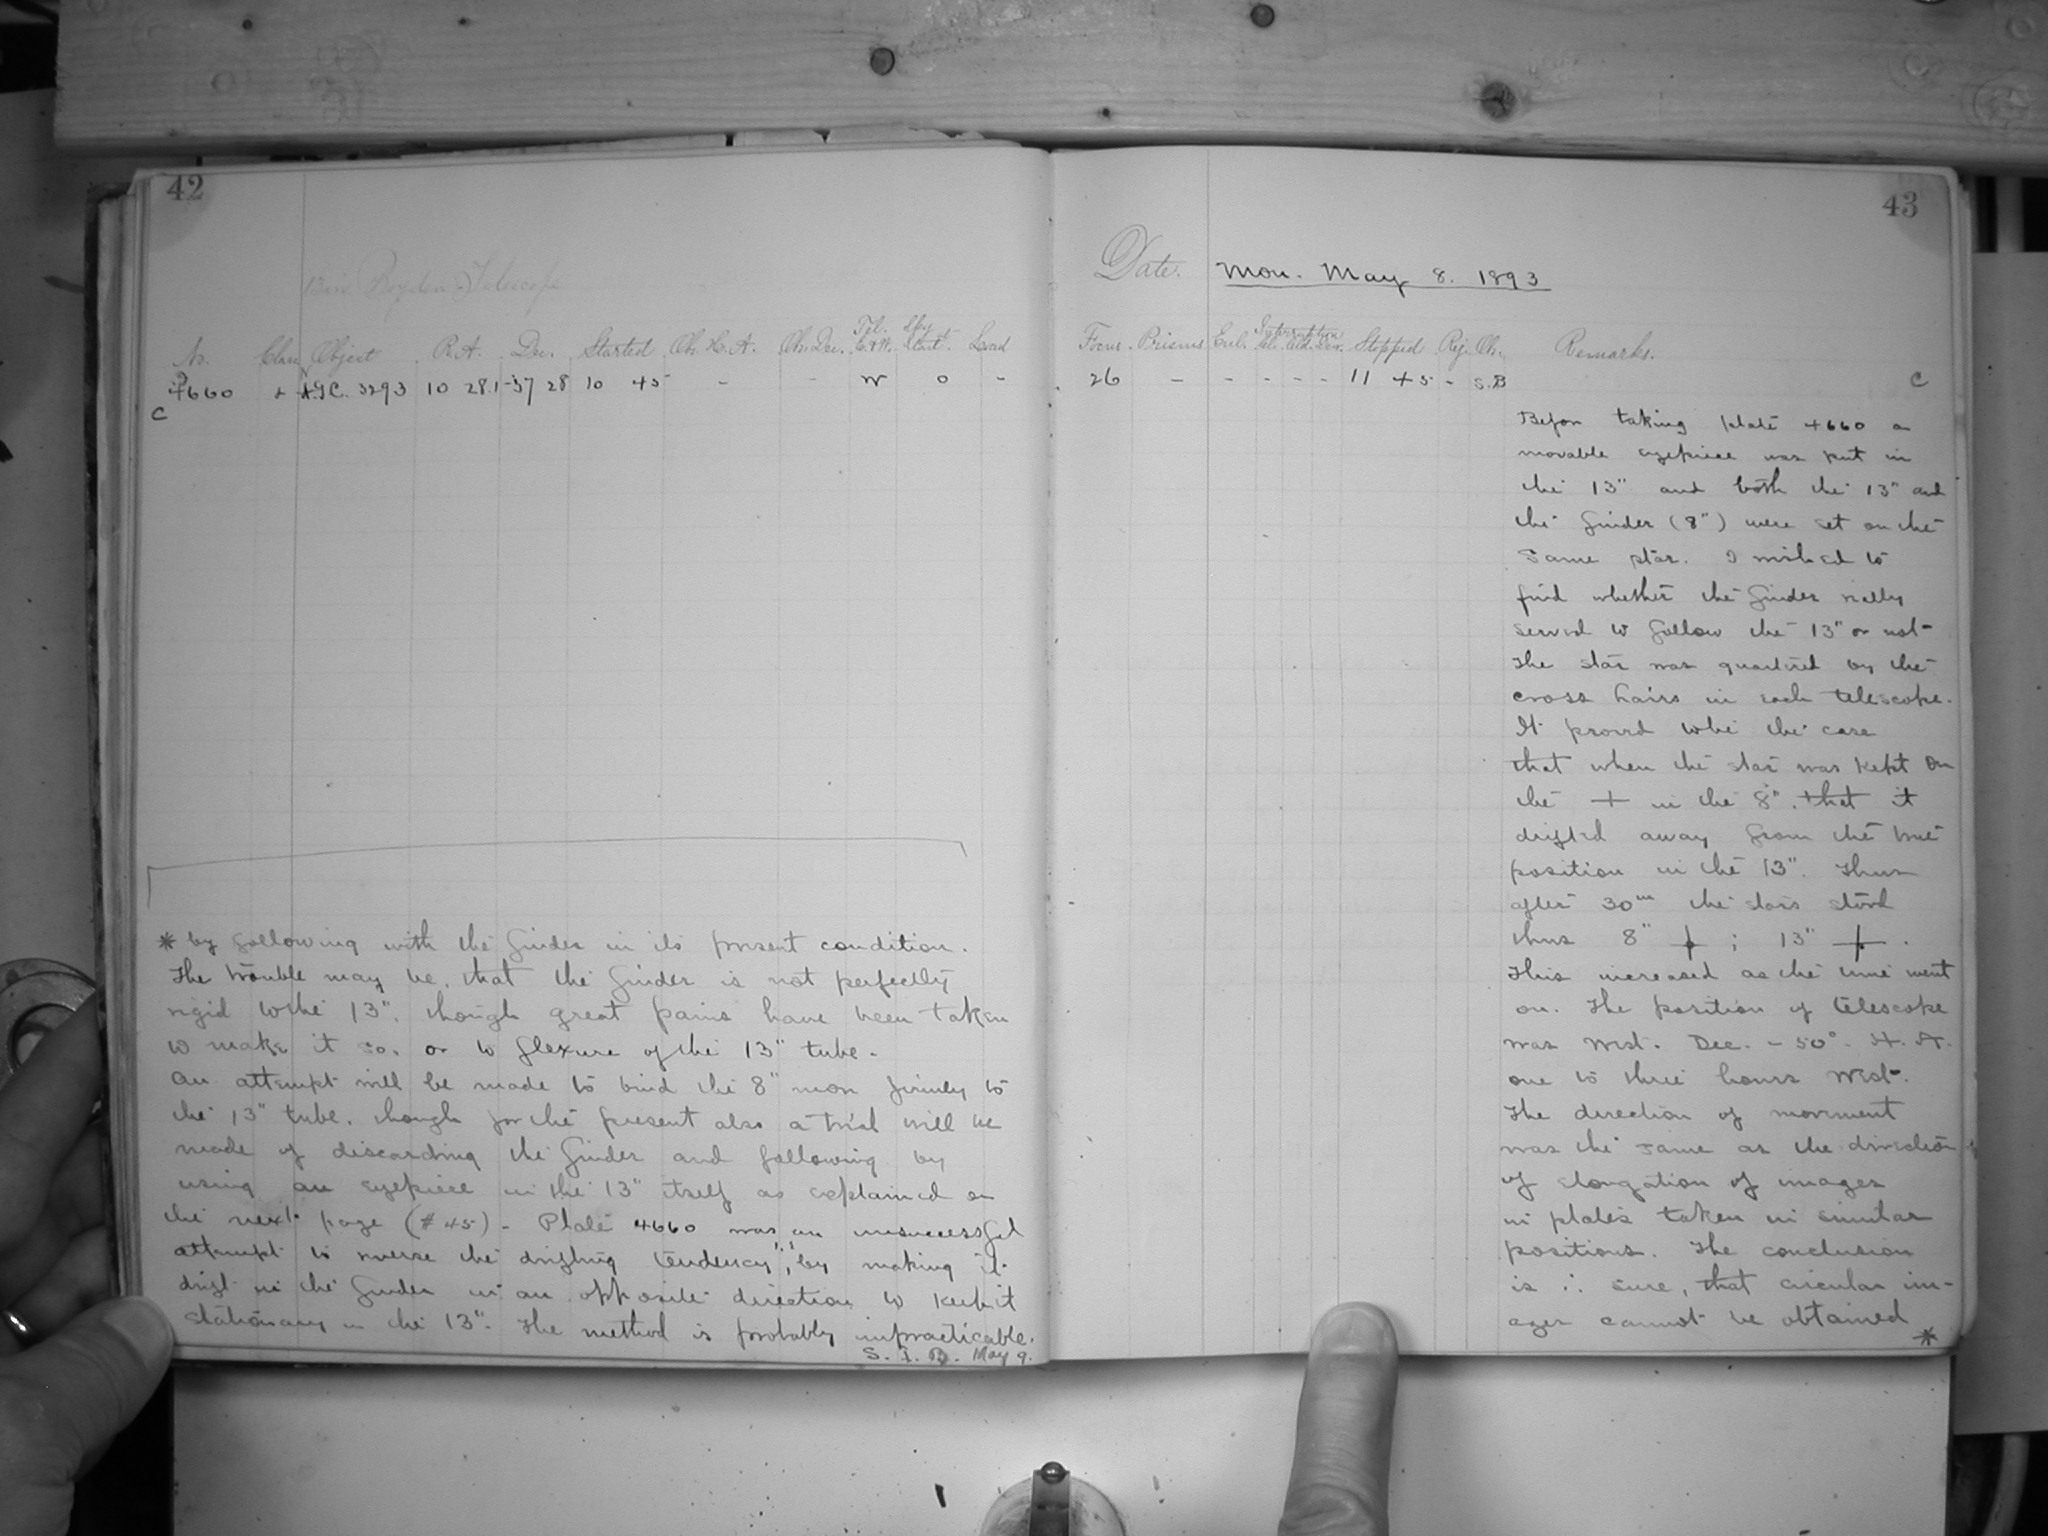 42
13 in. Boyden Telescope
No. Class Object R.A. Dec. Started Ob. H.A. Ob. Dec. Tel. E.&W. Sky Start. Load
4660 A.G.C. 3293 10 28.1 -57 28 10 45 - - W 0 -
C
* by following with the finder in its present condition.
The trouble may be, that the finder is not perfectly
rigid to the 13", though great pains have been taken
to make it so, or to flexure of the 13" tube.
An attempt will be made to bind the 8" more firmly to
the 13" tube, though for the present also a trial will be
made of discarding the finder and following by
using an eyepiece in the 13" itself as explained on
the next page (# 45) - Plate 4660 was an unsuccessful
attempt to reverse the drifting tendency, by making it
drift in the finder in an opposite direction to keep it
stationary in the 13". The method is probably impracticable.
S. I. B. May 9.
43
Date. Mon. May 8. 1893
Focus Prisms Excl. Interruption Stopped Rej. Ob. Remarks.
26 - - - - - 11 45 - S.B
C
Before taking plate 4660 a
movable eyepiece was put in
the 13" and both the 13" and
the finder (8") were set on the
same star. I wished to
find whether the finder really
served to follow the 13" or not.
The star was quartered by the
cross hairs in each telescope.
It proved to be the case
that when the star was kept on
the + in the 8", that it
drifted away from the true
position in the 13". Thus
after 30m the stars stood
thus 8" + ; 13" + .
This increased as the time went
on. The position of telescope
was West. Dec. - 50°. H. A.
one to three hours West.
The direction of movement
was the same as the direction
of elongation of images
in plates taken in similar
positions. The conclusion
is ∴ sure, that circular im-
ages cannot be obtained
*